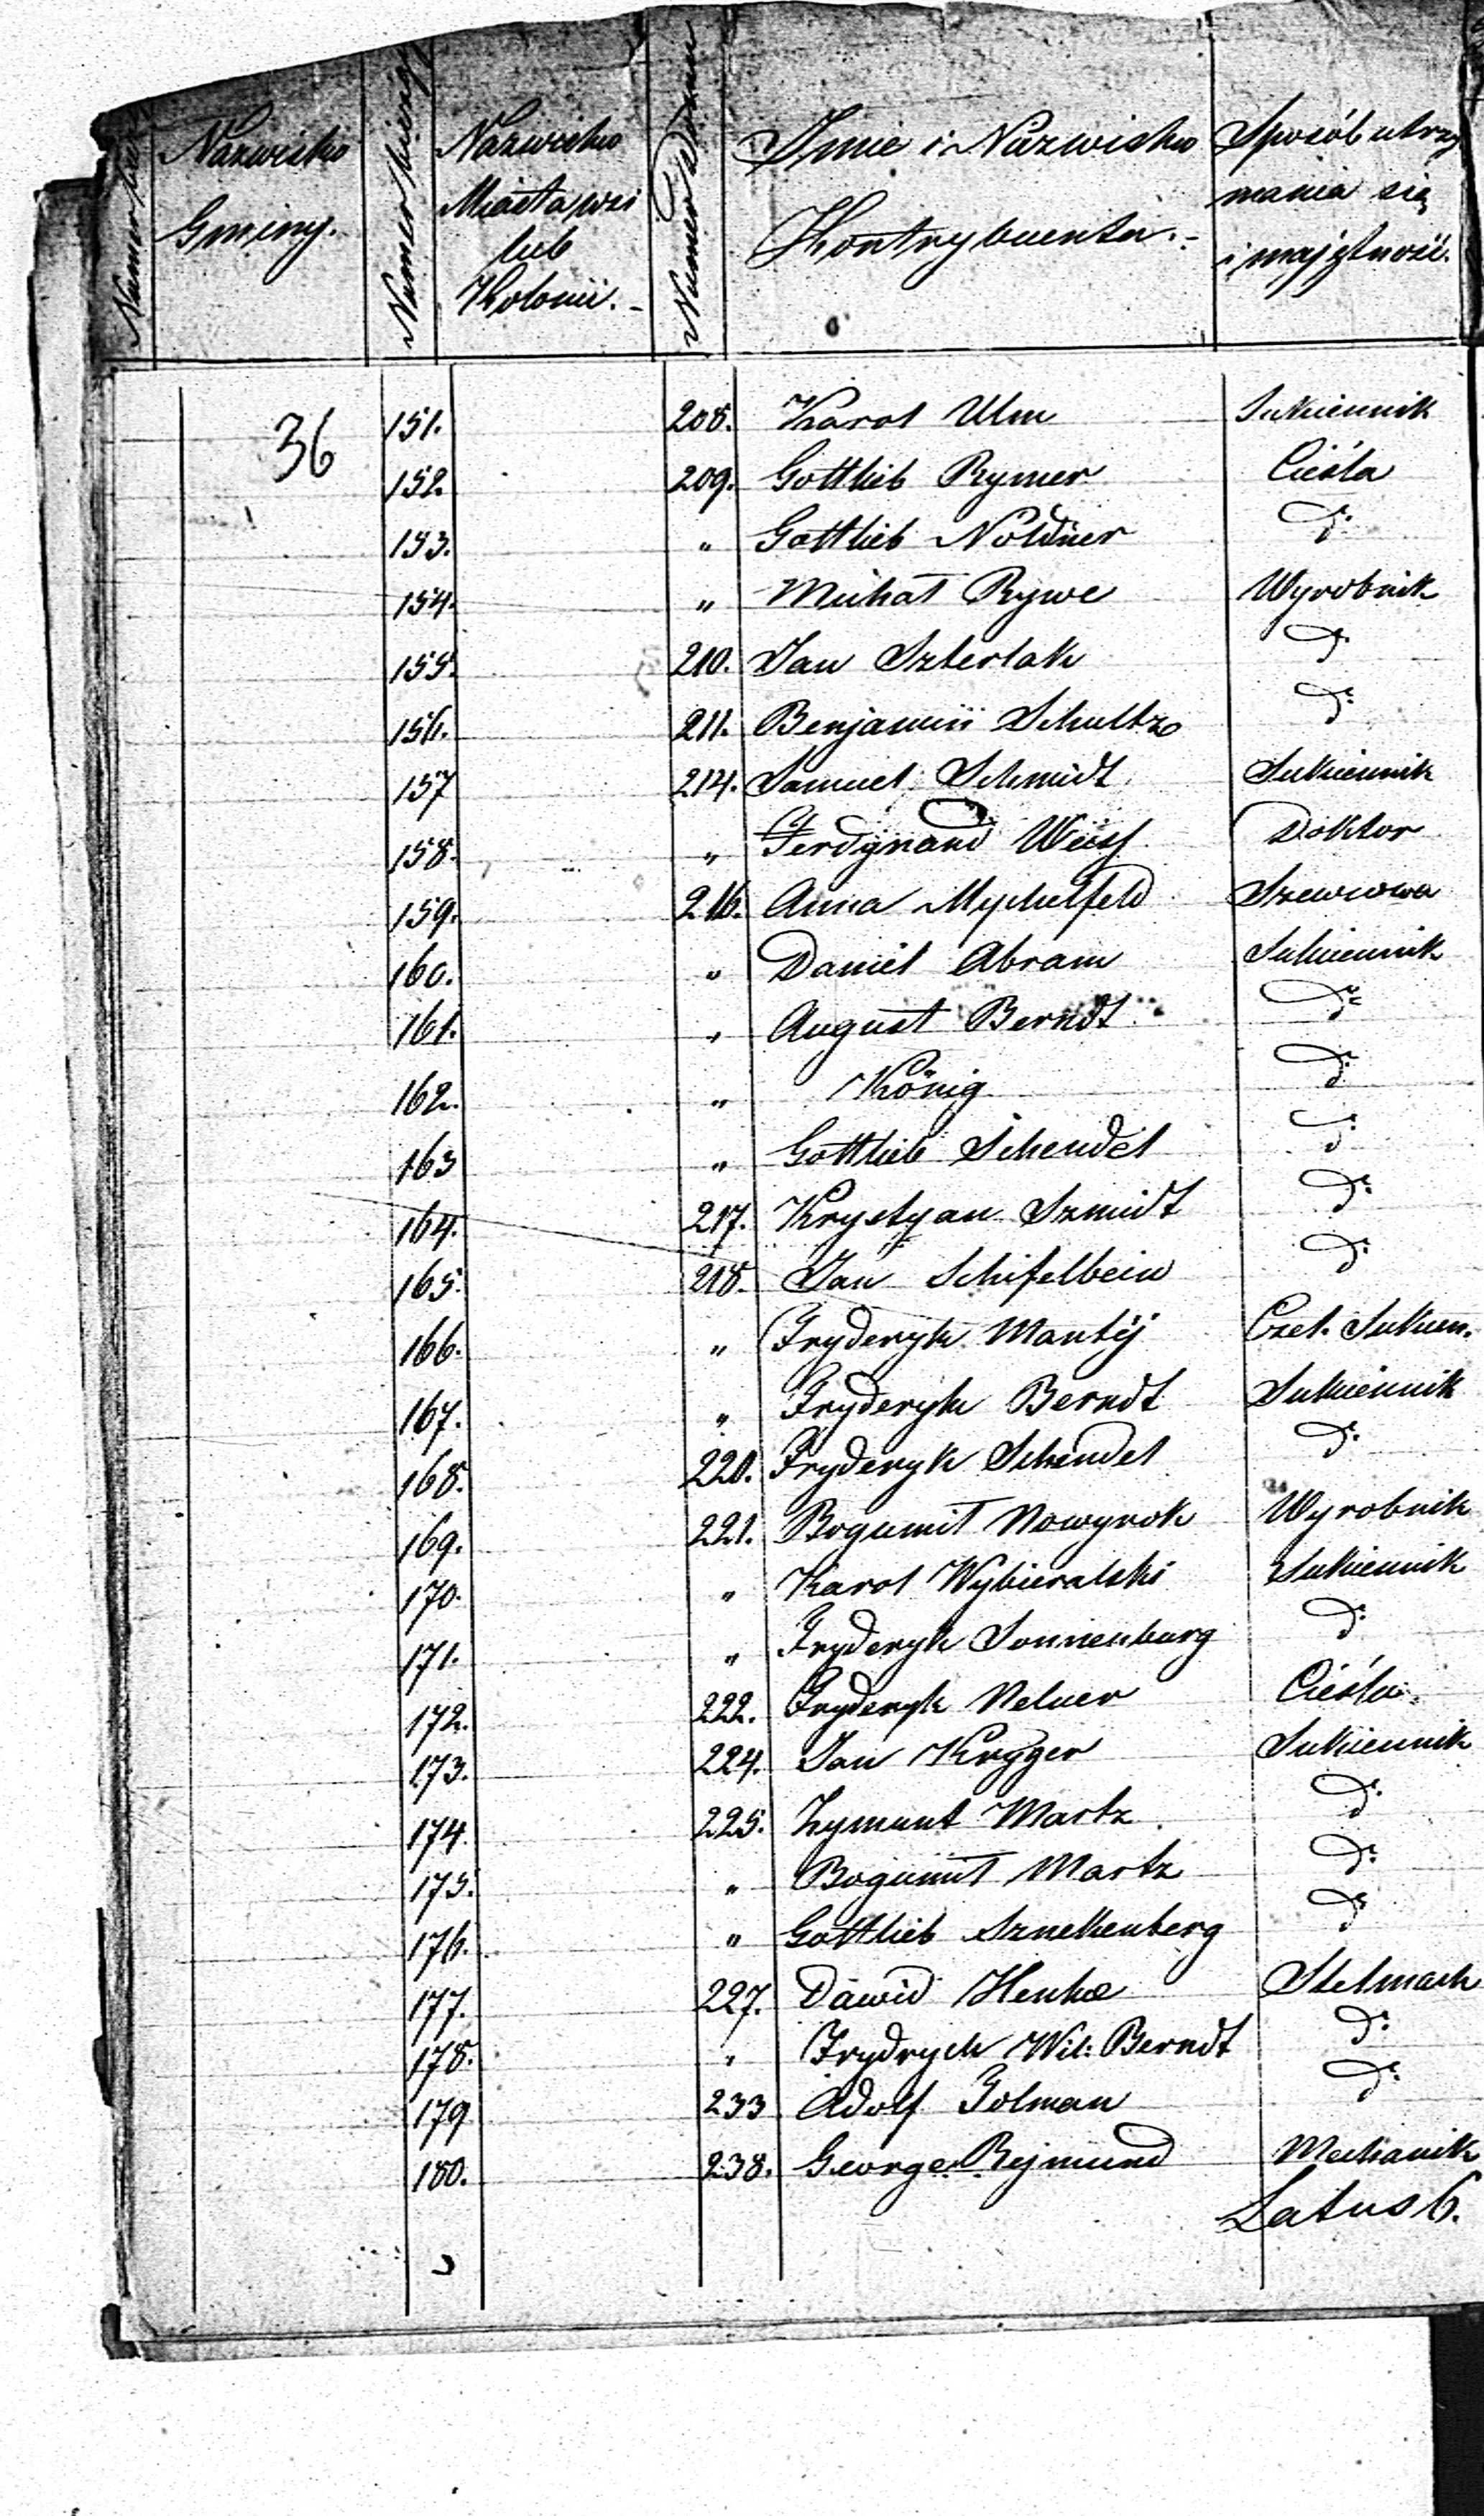 Nazwisko Gminy.
Numer bieżący
Nazwisko Miasta, wsi lub Kolonii. -
Numer Domu
Imie i Nazwisko Kontrybuenta. -
Sposób utrzymania się i majętność.
36
151. 208. Karol Ulm Sukiennik
152. 209. Gottlieb Rymer Cieśla
153. " Gottlieb Nöldner do
154. " Michał Rywe Wyrobnik
155. 210. Jan Szterlak do
156. 211. Benjamin Schultz do
157 214. Samuel Schmidt Sukiennik
158. " Ferdynand Weiss Doktor
159. 216. Anna Mychelfeld Szewcowa
160. " Daniel Abram Sukiennik
161. " August Berndt do
162. " König do
163 " Gottlieb Schendel do
164. 217. Krystyan Szmidt do
165. 218. Jan Schifelbein do
166. " Fryderyk Mantëj Czel. Sukien.
167. " Fryderyk Berndt Sukiennik
168. 220. Fryderyk Schendel do
169. 221. Bogumił Nowyrok Wyrobnik
170. " Karol Wybieralski Sukiennik
171. " Fryderyk Sonnenburg do
172. 222. Fryderyk Nelner Cieśla
173. 224. Jan Krygier Sukiennik
174. 225. Zymunt Martz do
175. " Bogumił Martz do
176. " Gottlieb Sznelkenberg do
177. 227. Dawid Henke Stelmach
178. " Frydrych Wil: Berndt do
179 233 Adolf Golman do
180. 238. George Rejmund Mechanik
Latus 6.